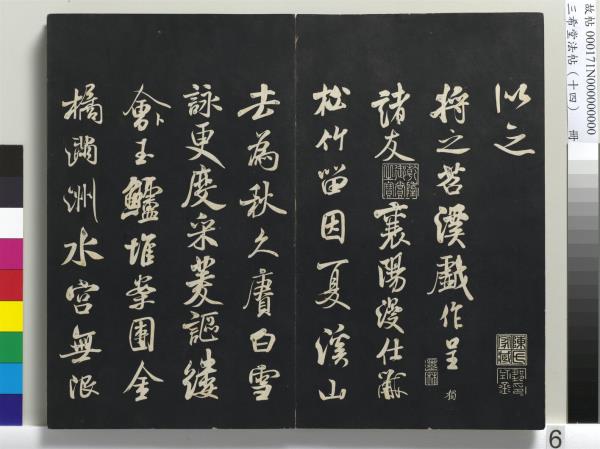 故帖 000171N000000000
三希堂法帖（十四） 冊
以之
將之苕溪戲作呈
諸友 襄陽漫仕黻
松竹留因夏溪山
去為秋久賡白雪
詠更度采菱謳縷
會卜玉鱸堆案團金
橘滿洲水宮無限
6